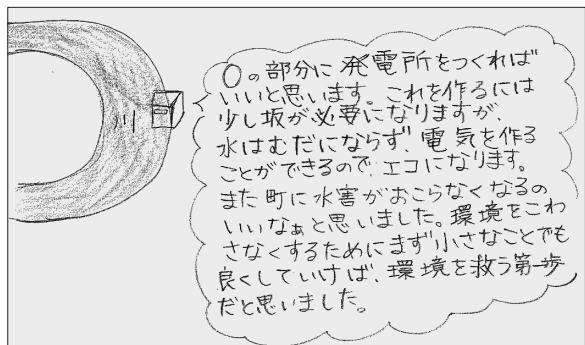 〇の部分に発電所をつくれば
いいと思います。これを作るには
少し坂が必要になりますが、
水はむだにならず、電気を作る
ことができるので、エコになります。
また町に水害がおこらなくなるの
いいなぁと思いました。環境をこわ
さなくするためにまず小さなことでも
良くしていけば、環境を救う第一歩
だと思いました。